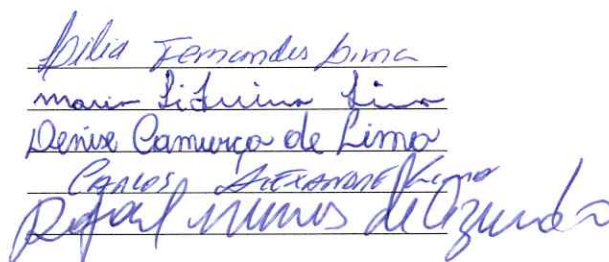 Fernandes Lima
Maria Lima
Denise Camurça de Lima
Carlos Alexandre Lima
Rafael Nunes de Azevedo